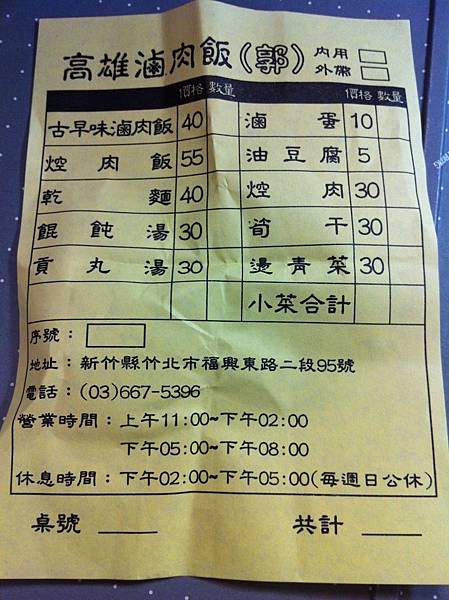 高雄滷肉飯(郭) 內用
外帶
價格 數量 價格 數量
古早味滷肉飯 40 滷蛋 10
焢肉飯 55 油豆腐 5
乾麵 40 焢肉 30
餛飩湯 30 筍干 30
貢丸湯 30 燙青菜 30
小菜合計
序號：
地址：新竹縣竹北市福興東路二段95號
電話：(03)667-5396
營業時間：上午11:00~下午02:00
下午05:00~下午08:00
休息時間：下午02:00~下午05:00(每週日公休)
桌號 ____ 共計 ____